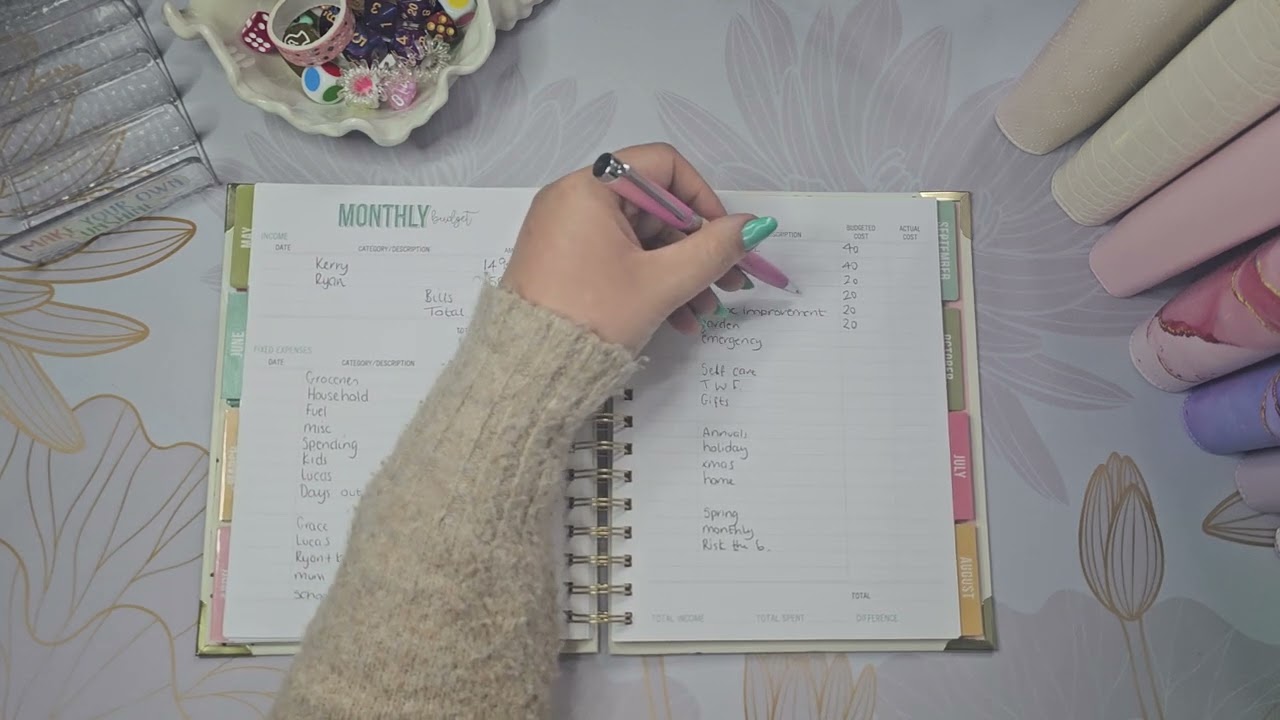 MAKE YOUR OWN
MAY
JUNE
MONTHLY budget
INCOME
DATE
CATEGORY/DESCRIPTION
Kerry
Ryan
Bills
Total
FIXED EXPENSES
DATE
CATEGORY/DESCRIPTION
Groceries
Household
Fuel
misc
Spending
Kids
Lucas
Days out
Grace
Lucas
mum
BUDGETED COST
ACTUAL COST
40
40
20
20
improvement 20
garden 20
emergency
Self care
T W F
Gifts
Annuals
holiday
xmas
home
Spring
monthly
Risk the b.
TOTAL
TOTAL INCOME
TOTAL SPENT
DIFFERENCE
SEPTEMBER
OCTOBER
JULY
AUGUST